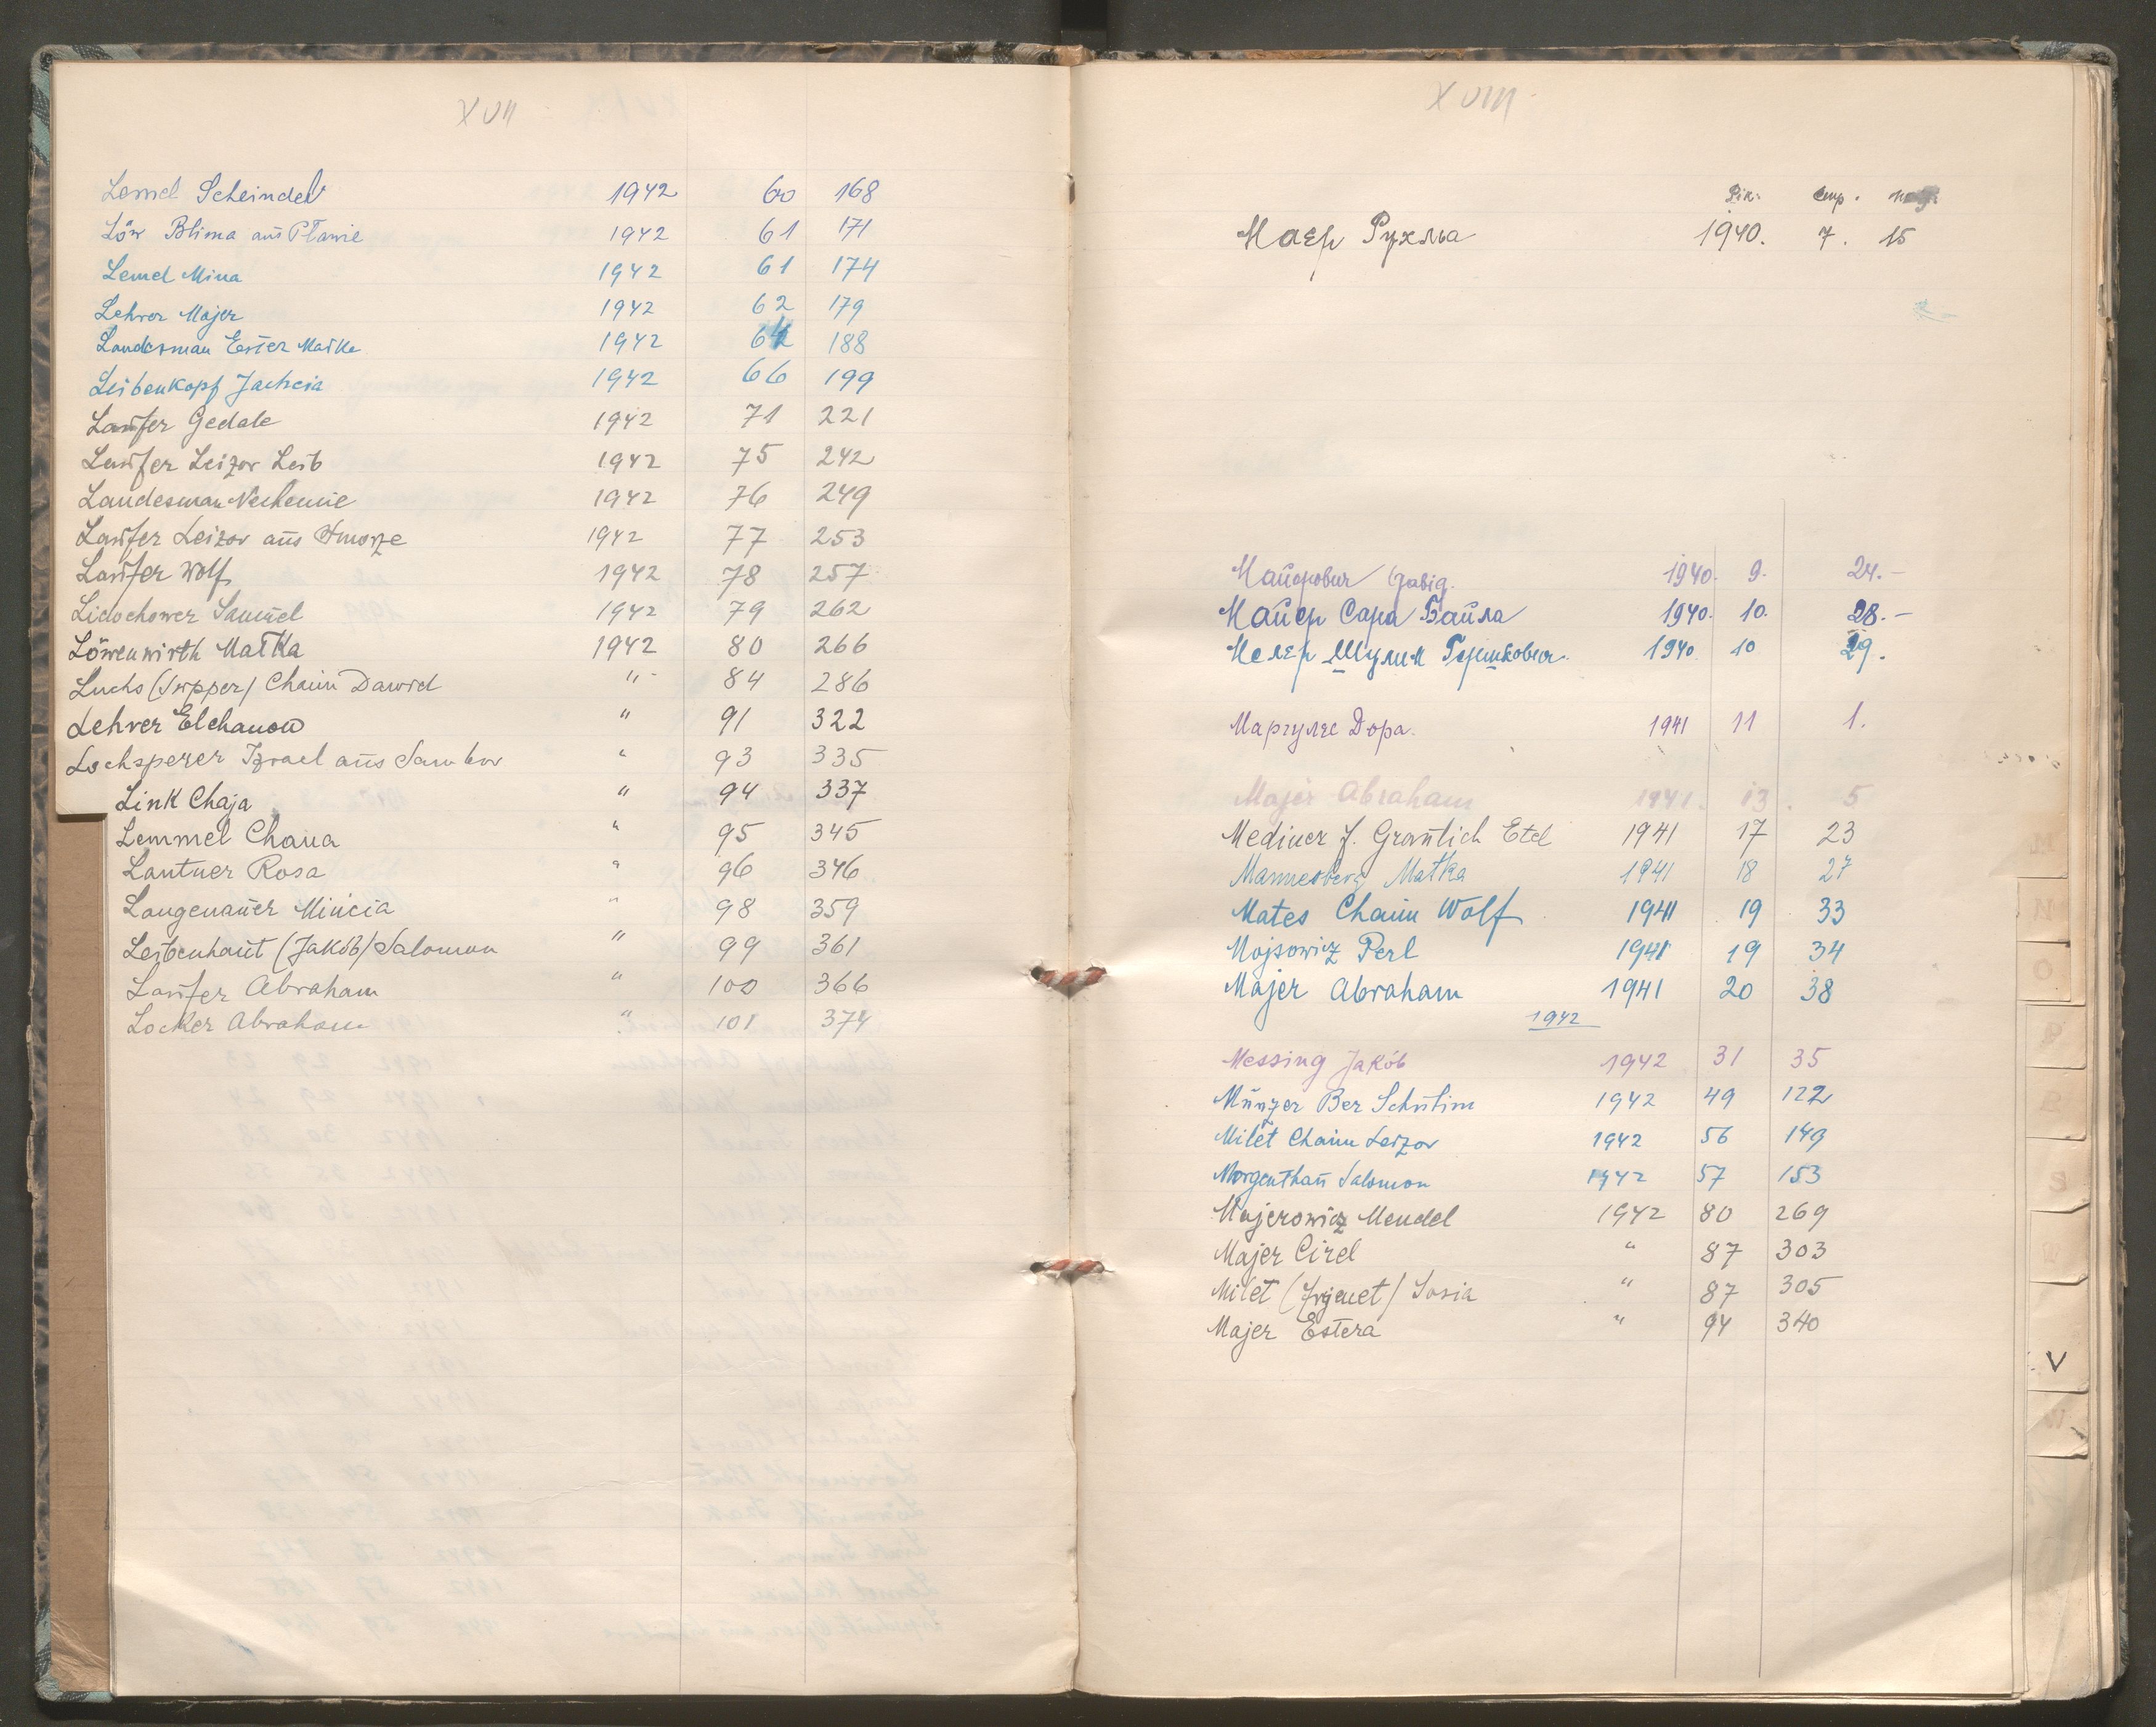 XVII
Lemel Scheindel 1942 60 168
Löw Blima aus Pławie 1942 61 171
Lemel Mina 1942 61 174
Lehrer Majer 1942 62 179
Landesman Ester Matke 1942 64 188
Leibenkopf Jachcia 1942 66 199
Laufer Gedale 1942 71 221
Laufer Leizor Leib 1942 75 242
Landesman Nechemie 1942 76 249
Laufer Leizor aus 1942 77 253
Laufer Wolf 1942 78 257
Lidochower Samuel 1942 79 262
Löwenwirth Matka 1942 80 266
Luchs (Supper) Chaim Dawid " 84 286
Lehrer Elchanon " 91 322
Lochsperer Izrael aus Sambor " 93 335
Link Chaja " 94 337
Lemmel Chana " 95 345
Lantner Rosa " 96 346
Langenauer Mincia " 98 359
Leibenhaut (Jakób) Salomon " 99 361
Laufer Abraham " 100 366
Locker Abraham " 101 374
XVIII
Рік. стр.
Маєр Рухльа 1940. 7. 15
Майерович Давід. 1940. 9. 24.-
Майер Сара Байла 1940. 10. 28.-
Мелер Шулим Гершкович. 1940 10 29.
Маргулес Дора. 1941 11 1.
Majer Abraham 1941. 13. 5
Mediner f. Graulich Etel 1941 17 23
Mannesberg Matka 1941 18 27
Mates Chaim Wolf 1941 19 33
Mojsowicz Perl 1941 19 34
Majer Abraham 1941 20 38
1942
Messing Jakób 1942 31 35
Münzer Ber Schulim 1942 49 122
Milet Chaim Leizor 1942 56 149
Morgenthau Salomon 1942 57 153
Majerowicz Mendel 1942 80 269
Majer Cirel " 87 303
Milet Sosia " 87 305
Majer Estera " 94 340
V